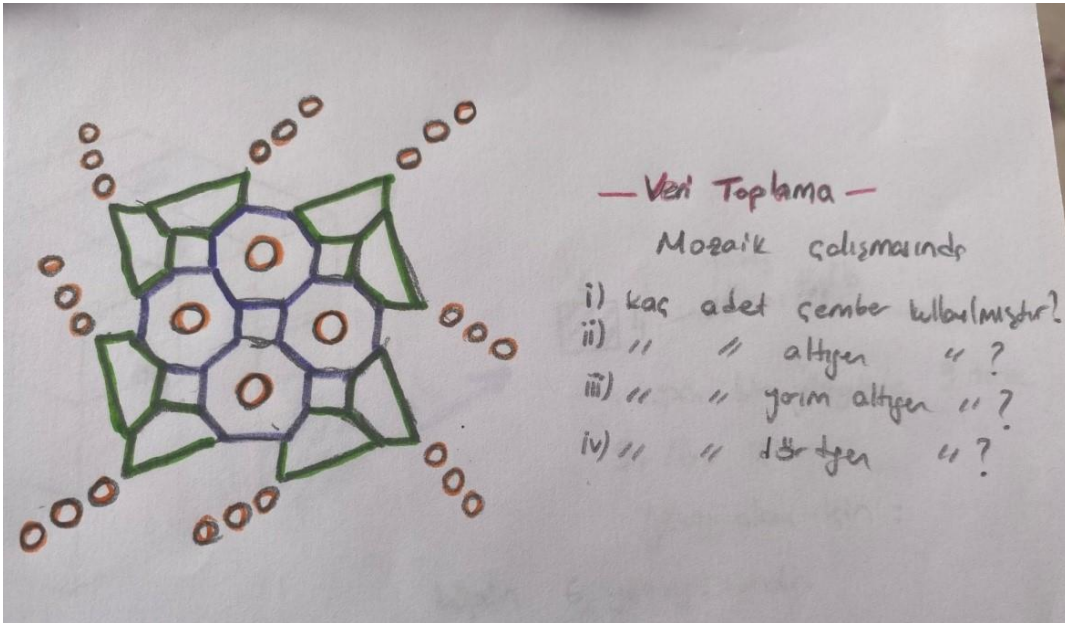 — Veri Toplama —
Mozaik çalışmasında
i) kaç adet çember kullanılmıştır?
ii) " " altıgen " ?
iii) " " yarım altıgen " ?
iv) " " dörtgen " ?